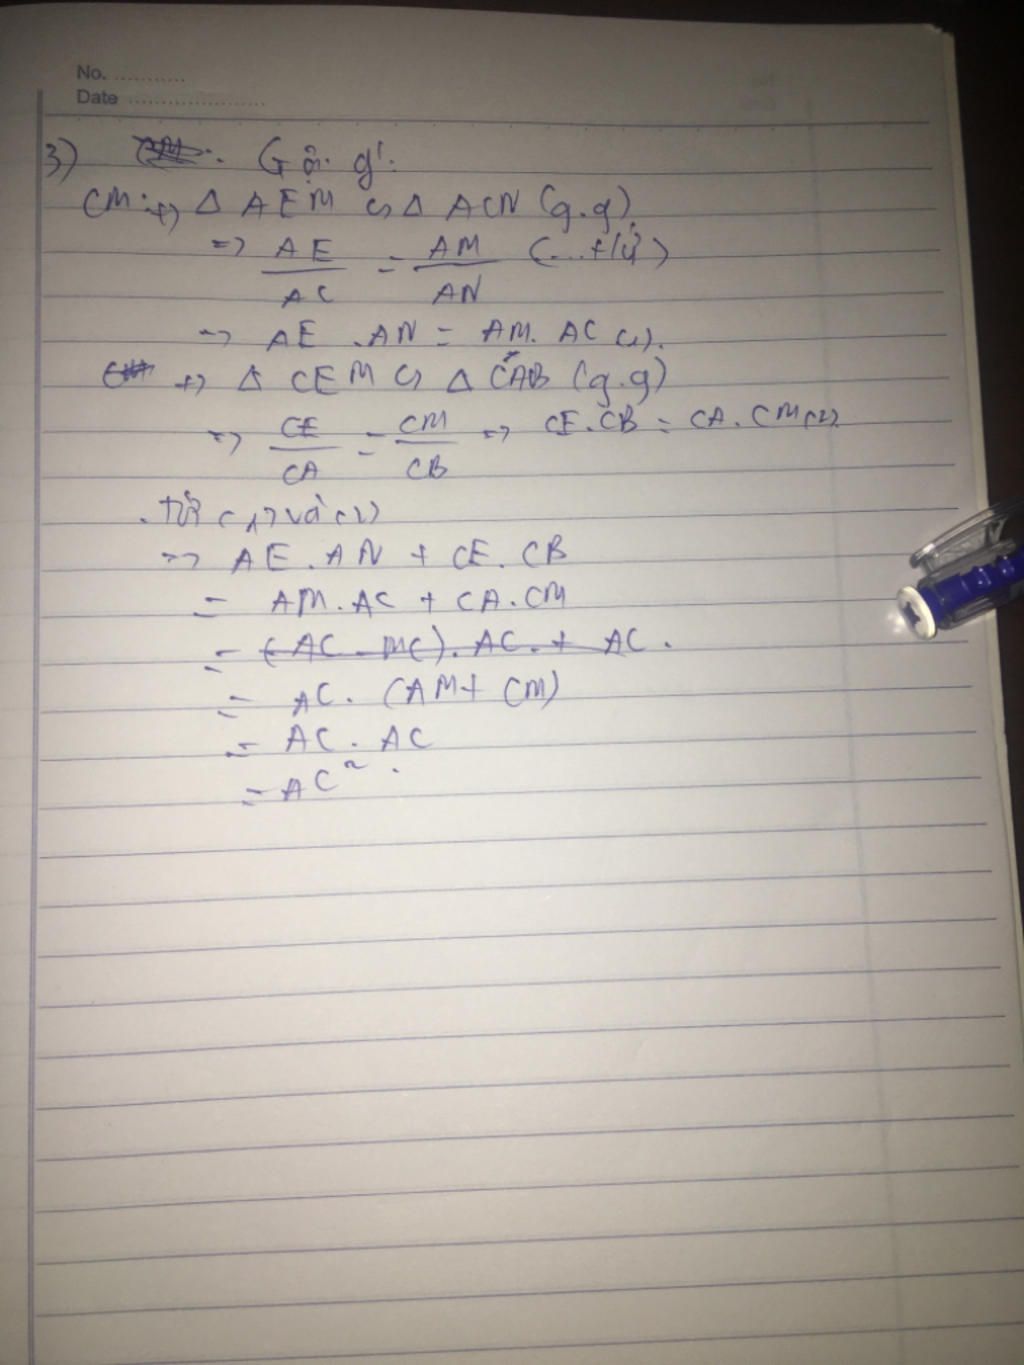 No. ...........
Date ......................
3) Gợi ý:
CM: +) Δ AEM ∽ Δ ACN (g.g)
=> AE/AC = AM/AN (...t/lứ)
=> AE . AN = AM. AC (1).
+) Δ CEM ∽ Δ CAB (g.g)
=> CE/CA = CM/CB => CE.CB = CA.CM (2)
. Từ (1) và (2)
=> AE.AN + CE.CB
= AM.AC + CA.CM
= (AC - MC). AC. + AC.
= AC. (AM + CM)
= AC . AC
= AC² .